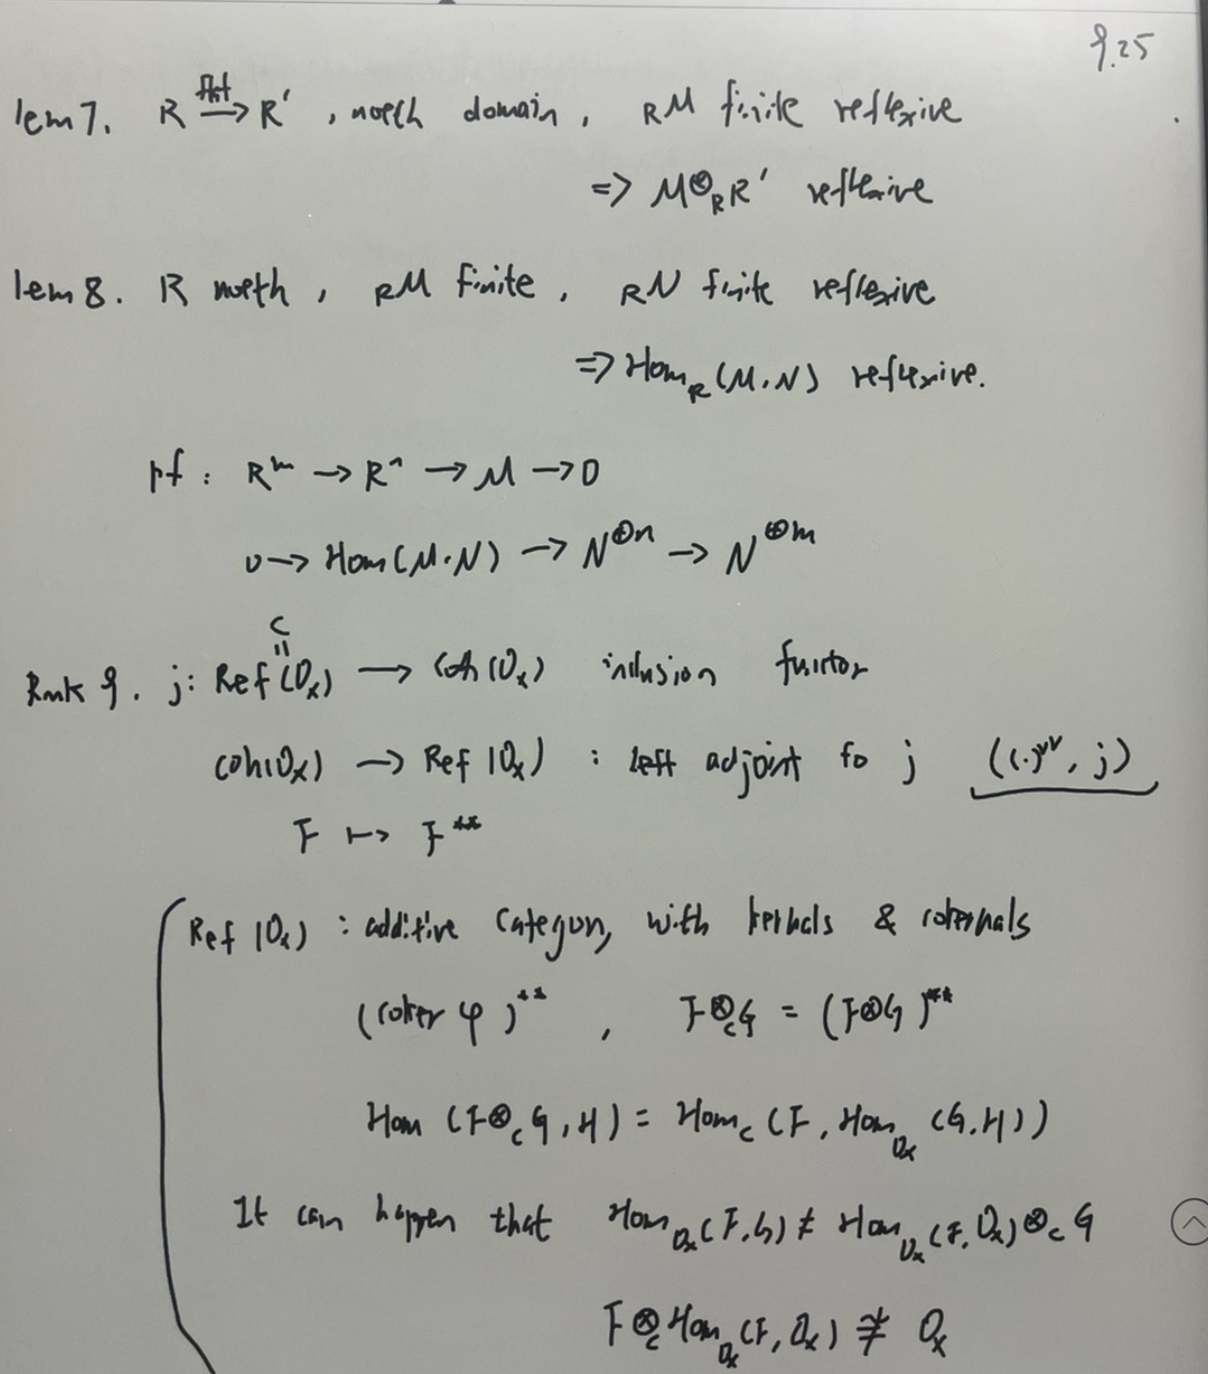 9.25
lem 7. R \xrightarrow{flat} R' , noeth domain , _RM finite reflexive
=> M⊗_R R' reflexive
lem 8. R noeth , _RM finite , _RN finite reflexive
=> Hom_R (M.N) reflexive.
pf : R^m → R^n → M → 0
0 → Hom(M.N) → N^{⊕n} → N^{⊕m}
C
॥
Rmk 9. j: Ref(O_x) → Coh(O_x) inclusion functor
coh(O_x) → Ref(O_x) : left adjoint to j ((·)^{vv}, j)
F ↦ F^{**}
Ref(O_x) : additive category, with kernels & cokernals
(coker φ)^{**} , F⊗_C G = (F⊗G)^{**}
Hom (F⊗_C G, H) = Hom_C (F, Hom_{O_x} (G.H))
It can happen that Hom_{O_x}(F,G) ≠ Hom_{O_x}(F, O_x)⊗_C G
F⊗_C Hom_{O_x}(F, O_x) ≇ O_x